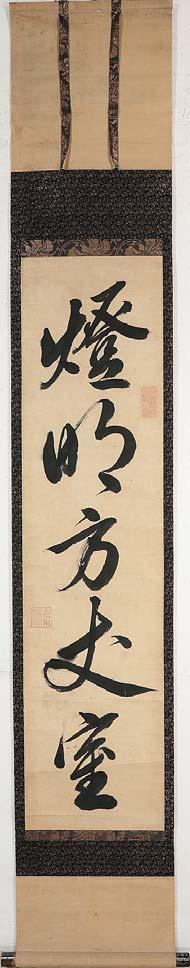 燈明方丈室